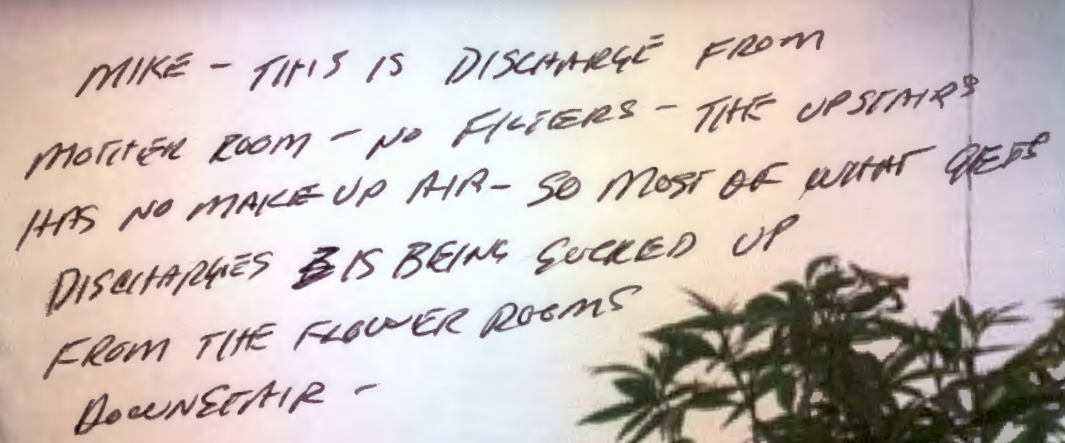 MIKE - THIS IS DISCHARGE FROM
MOTHER ROOM - NO FILTERS - THE UPSTAIRS
HAS NO MAKE UP AIR - SO MOST OF WHAT GETS
DISCHARGES IS BEING SUCKED UP
FROM THE FLOWER ROOMS
DOWNSTAIR -